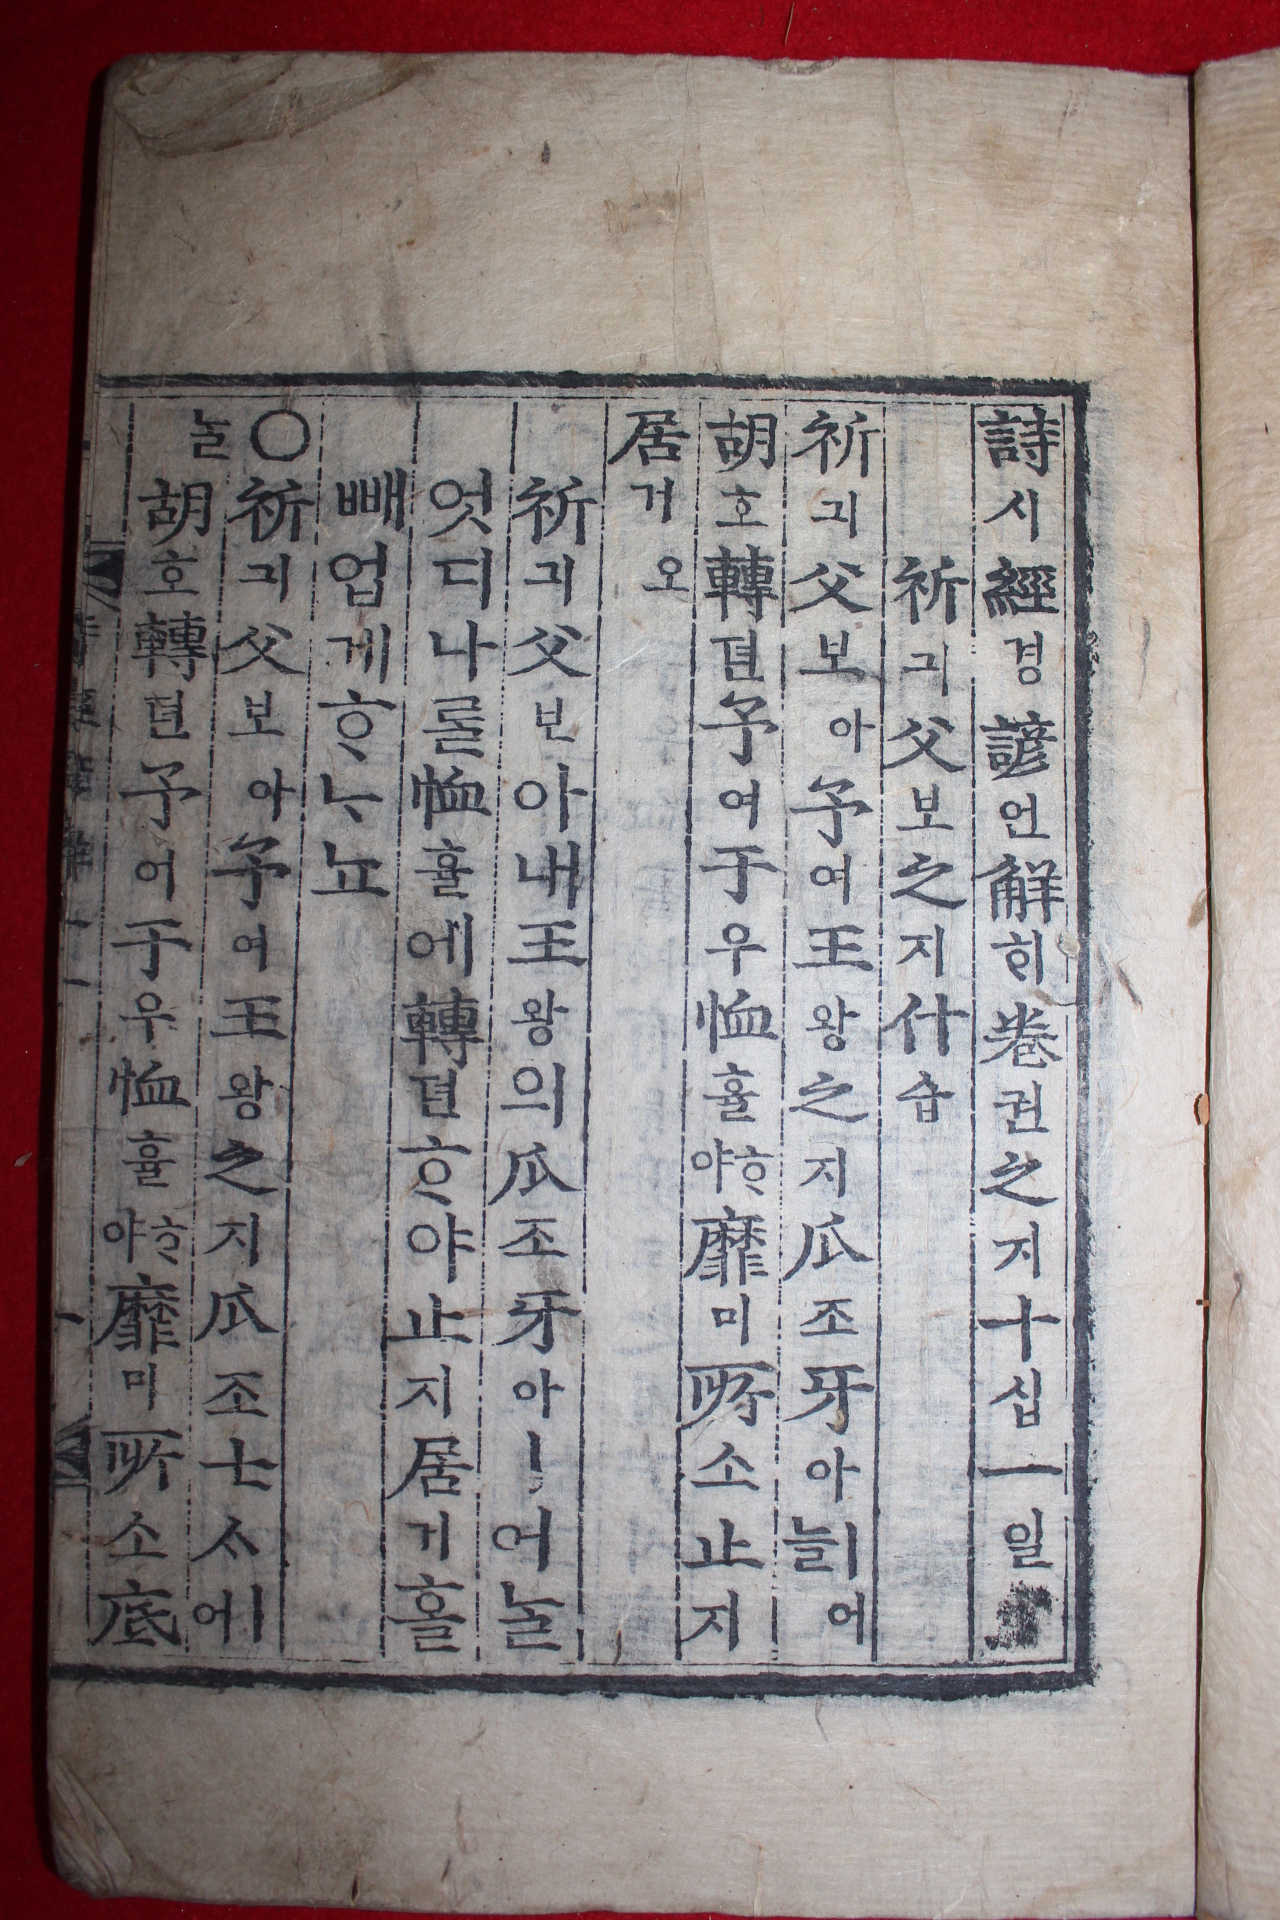 詩시經경諺언解ᄒᆡ卷권之지十십一일
祈긔父보之지什습
祈긔父보아予여王왕之지瓜조牙아늴ㅣ어
胡호轉뎐予여于우恤휼ᄒᆞ야靡미所소止지
居거오
祈긔父보아내王왕의瓜조牙아ㅣ어늘
엇디나를恤휼에轉뎐ᄒᆞ야止지居거홀
빼업게ᄒᆞᄂᆞ뇨
○祈긔父보아予여王왕之지瓜조士ᄉᆞㅣ어늘
胡호轉뎐予여于우恤휼ᄒᆞ야靡미所소底